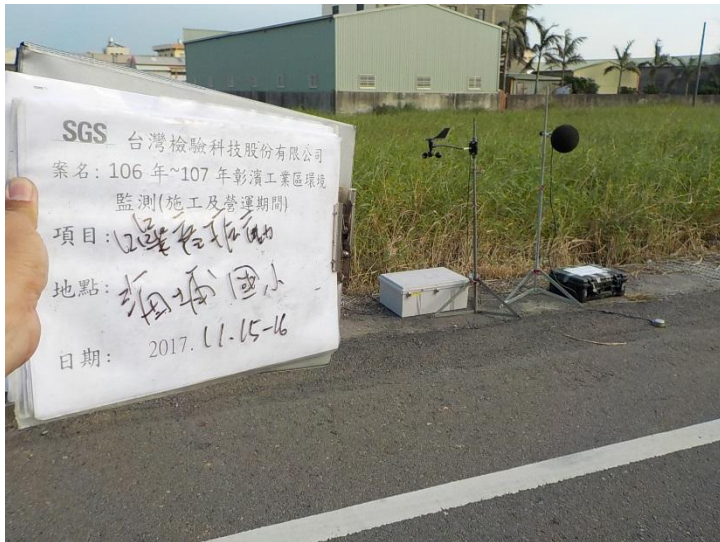 SGS 台灣檢驗科技股份有限公司
案名: 106 年~107 年彰濱工業區環境
監測(施工及營運期間)
項目: 噪音振動
地點: 國小
日期: 2017. 11.15-16